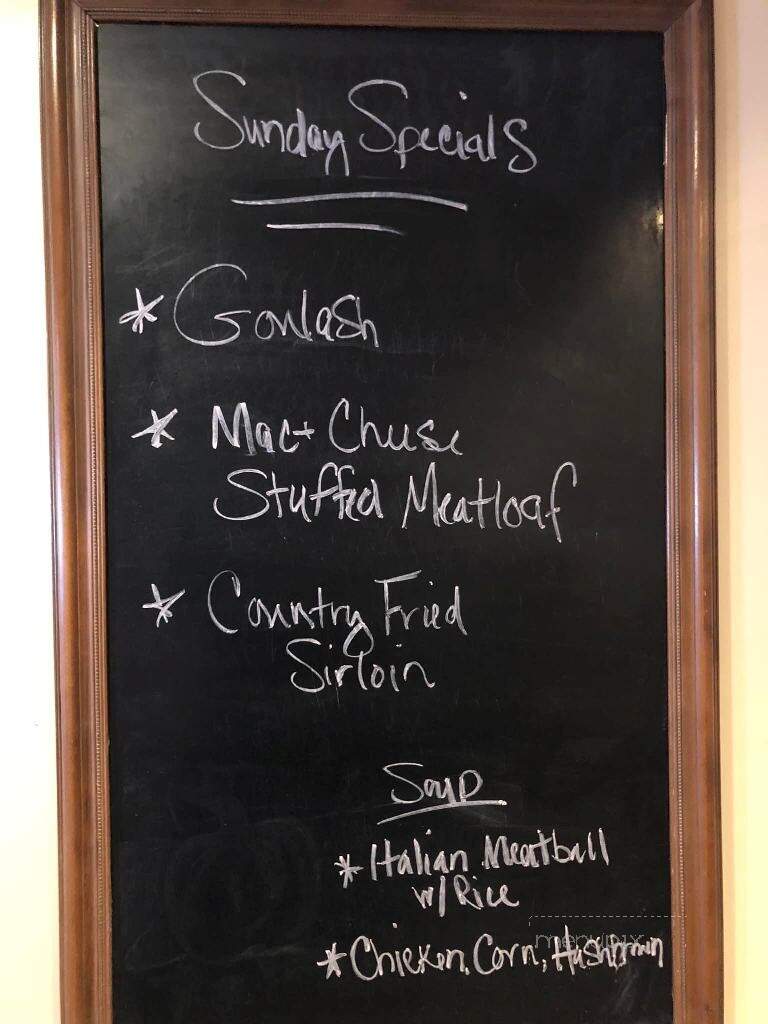 Sunday Specials
* Goulash
* Mac + Cheese
Stuffed Meatloaf
* Country Fried
Sirloin
Soup
* Italian Meatball
w/ Rice
* Chicken, Corn,
menupix